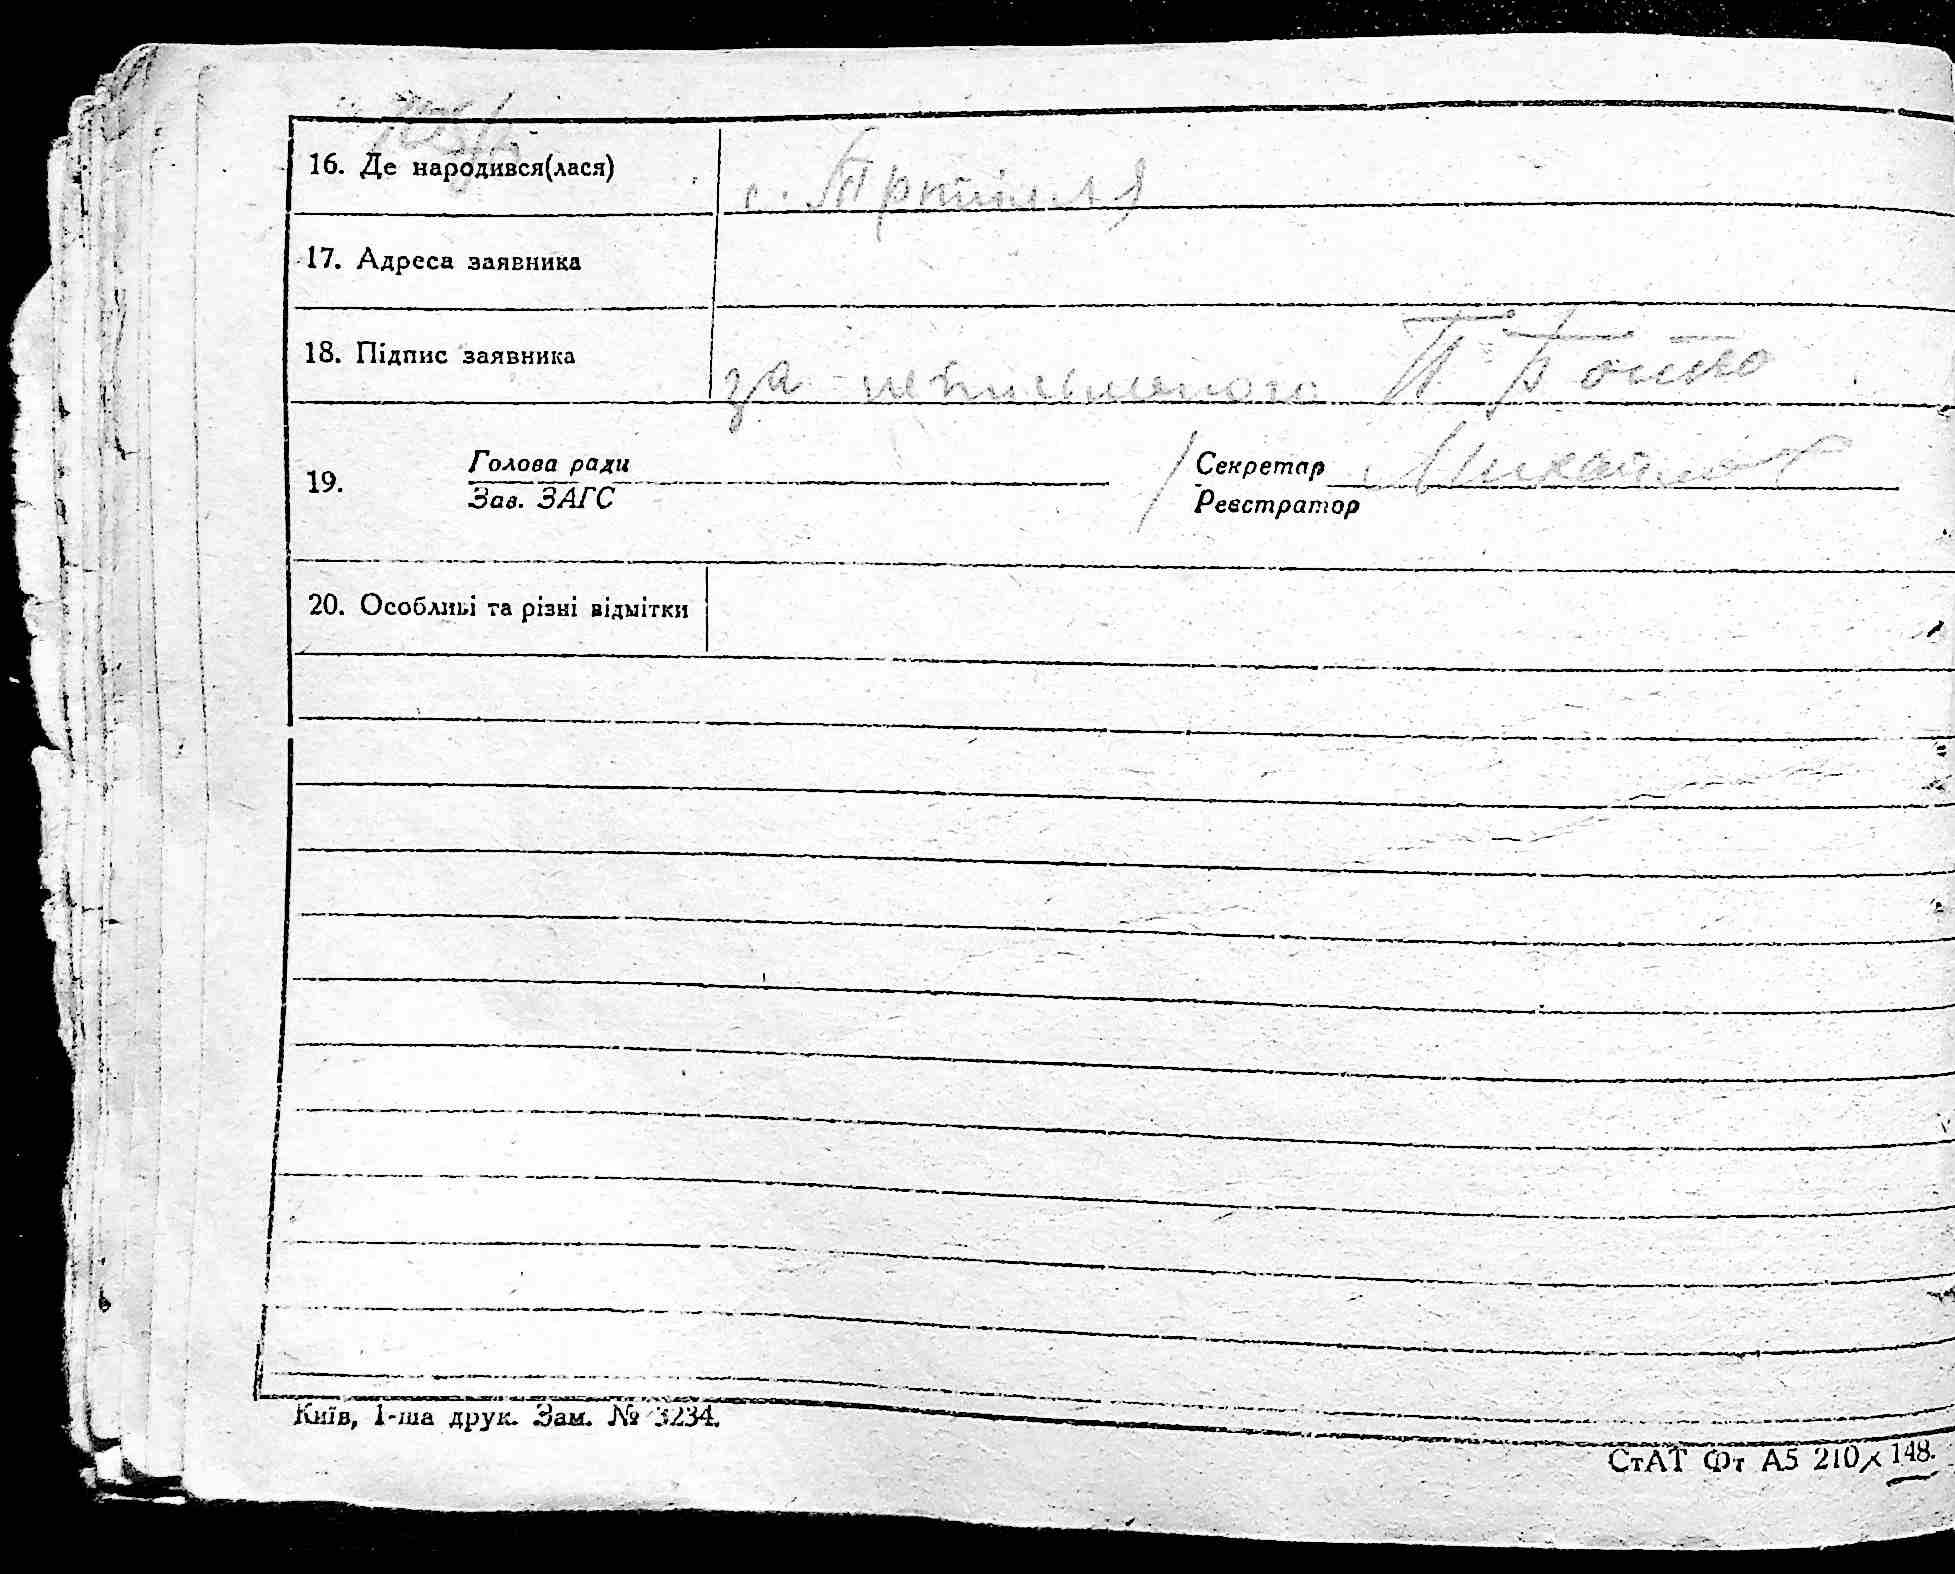 16. Де народився(лася) с. Трипілля
17. Адреса заявника
18. Підпис заявника за неписьменого П Бойко
19. Голова ради Секретар
Зав. ЗАГС Реєстратор
20. Особливі та різні відмітки
Київ, 1-ша друк. Зам. № 3234.
СтАТ Фт А5 210х148.